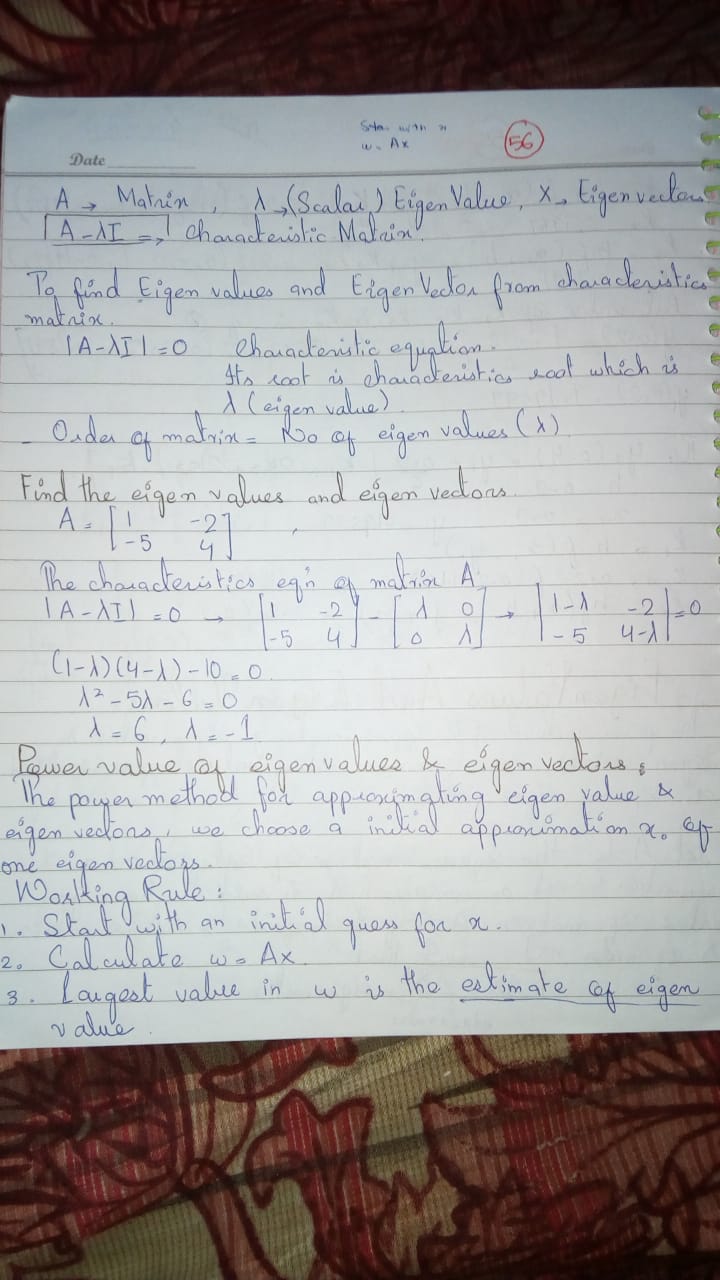 Start with x
w = Ax
56
Date
A → Matrix, λ → (Scalar) Eigen Value, X → Eigen vectors
|A-λI| => Characteristic Matrix.
To find Eigen values and Eigen Vector from characteristics
matrix.
|A-λI| = 0 Characteristic equation.
Its root is characteristics root which is
λ (eigen value).
- Order of matrix = No of eigen values (λ)
Find the eigen values and eigen vectors.
A = [1 -2]
[-5 4]
The characteristics eqn of matrix A
|A-λI| = 0 → [1 -2] - [λ 0] → |1-λ -2| = 0
[-5 4] [0 λ] |-5 4-λ|
(1-λ)(4-λ) - 10 = 0
λ² - 5λ - 6 = 0
λ = 6, λ = -1
Power value of eigen values & eigen vectors:
The power method for approximating eigen value &
eigen vectors, we choose a initial approximation x₀ of
one eigen vectors.
Working Rule:
1. Start with an initial guess for x.
2. Calculate w = Ax
3. Largest value in w is the estimate of eigen
value.